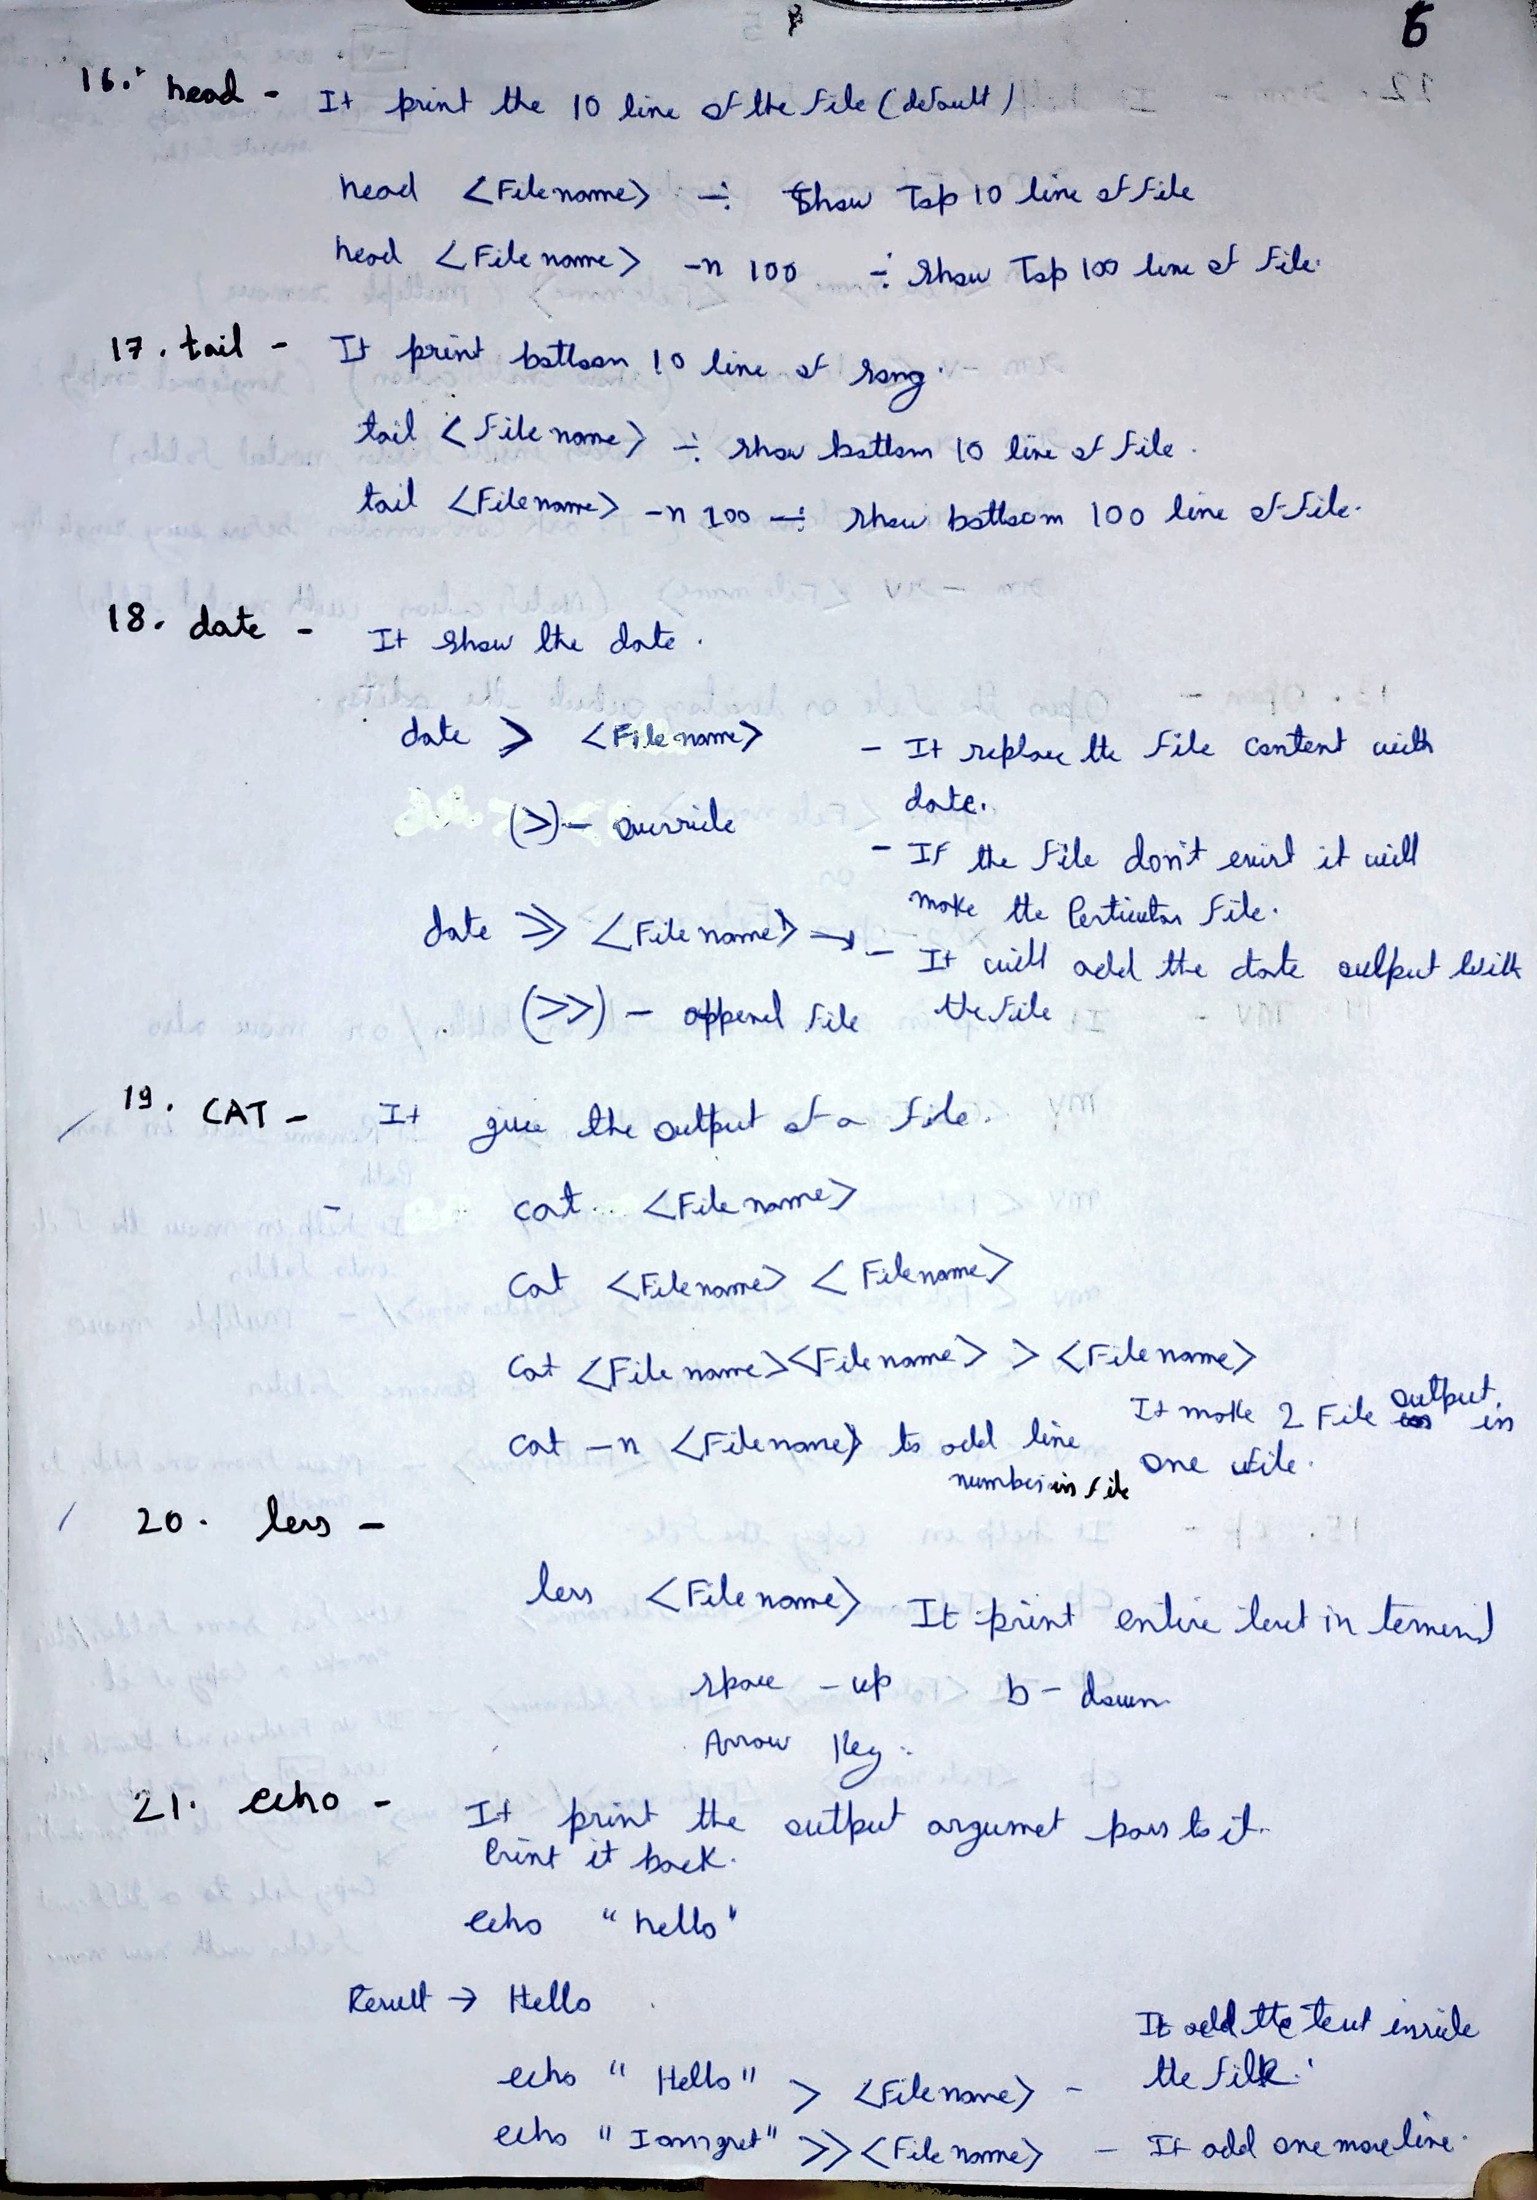 6
16. head - It print the 10 line of the file (default)
head <File name> ÷ Show Top 10 line of file
head <File name> -n 100 ÷ show Top 100 line of file.
17. tail - It print bottoom 10 line of
tail <File name> ÷ show bottom 10 line of file.
tail <File name> -n 100 ÷ show bottoom 100 line of file.
18. date - It show the date.
date > <File name> - It replace the file content with
date.
(>) - override
- If the file don't exist it will
make the Perticular file.
date >> <File name> → - It will add the date output with
the file
(>>) - append file
19. CAT - It give the output of a file.
- cat <File name>
Cat <File name> <File name>
Cat <File name> <File name> > <File name>
It make 2 File output in
one file.
cat -n <File name> to add line
number in file
20. less -
less <File name> It print entire text in
space - up b - down
Arrow Key.
21. echo - It print the output argumet pass to it.
Print it back.
echo "hello"
Result → Hello
echo "Hello" > <File name> - It add the text inside
the file.
echo "I am" >> <File name> - It add one more line.